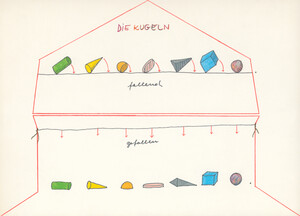 DIE KUGELN
fallend
gefallen